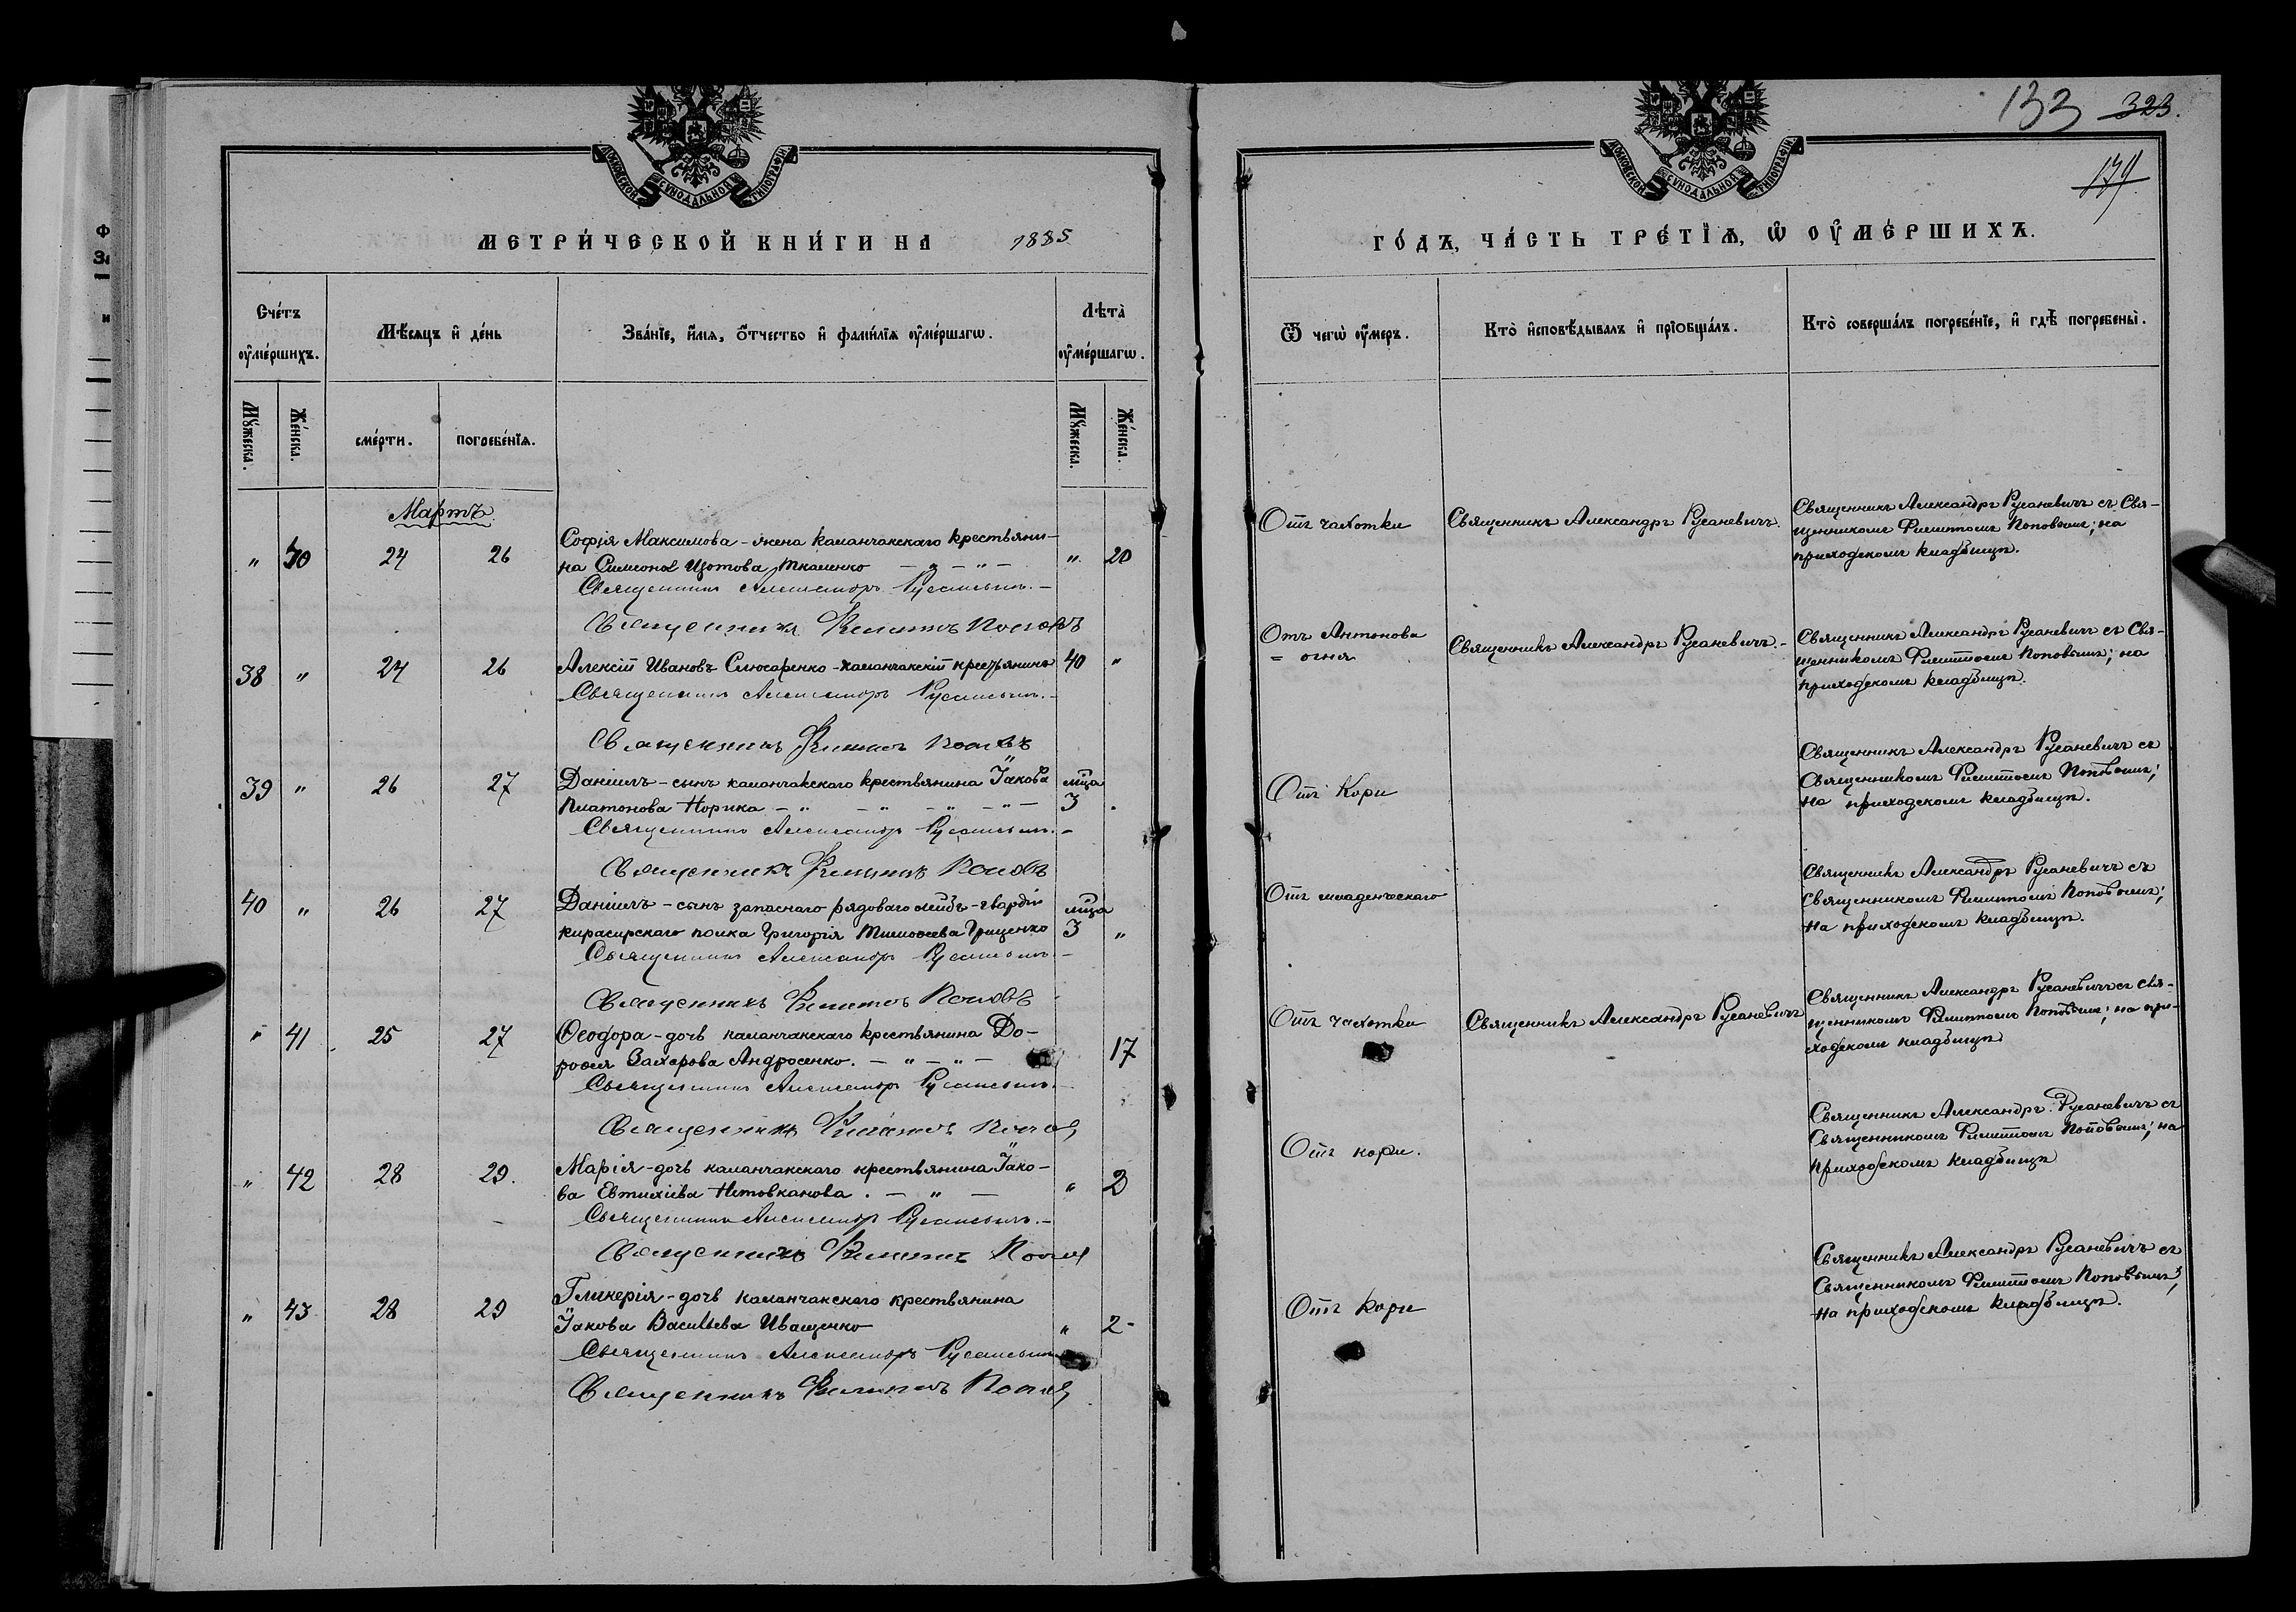 133 323.
179
МОСКОВСКОЙ СѴНОДАЛЬНОЙ ТИПОГРАФІИ
МОСКОВСКОЙ СѴНОДАЛЬНОЙ ТИПОГРАФІИ
МЕТРИ́ЧЕСКОЙ КНИ́ГИ НА 1885
ГО́ДЪ, ЧА́СТЬ ТРЕ́ТІѦ, Ѡ ОУМЕ́РШИХЪ.
Счетъ оумершихъ.
Мѣсяцъ и день
Званіе, имя, отчество и фамилія оумершагѡ.
Лѣта оумершагѡ.
Ѿ чегѡ оумеръ.
Кто исповѣдывалъ и пріобщалъ.
Кто совершалъ погребеніе, и гдѣ погребены.
Мꙋжеска.
Женска.
смерти.
погребенія.
Мꙋжеска.
Женска.
Мартъ
Софія Максимова - жена каланчакскаго крестьяни-
" 40 24 26 на Симеона Изотова Ткаленко — " — " — " 20
Священникъ Александръ Русаневичъ. -
Священникъ Филиппъ Поповъ
Отъ чахотки
Священникъ Александръ Русаневичъ.
Священникъ Александръ Русаневичъ съ Свя-
щенникомъ Филиппомъ Поповымъ; на
приходскомъ кладбищѣ.
38 " 24 26 Алексій Ивановъ Слюсаренко - каланчакскій крестьянинъ 40 "
Священникъ Александръ Русаневичъ. -
Священникъ Филиппъ Поповъ
Отъ Антонова
= огня
Священникъ Александръ Русаневичъ. -
Священникъ Александръ Русаневичъ съ Свя-
щенникомъ Филиппомъ Поповымъ; на
приходскомъ кладбищѣ.
39 " 26 27 Даніилъ - сынъ каланчакскаго крестьянина Іакова мца
Платонова Норика — " — " — " — " — 3 "
Священникъ Александръ Русаневичъ. -
Священникъ Филиппъ Поповъ
Отъ Кори
Священникъ Александръ Русаневичъ съ
Священникомъ Филиппомъ Поповымъ;
на приходскомъ кладбищѣ.
40 " 26 27 Даніилъ - сынъ запаснаго рядоваго лейбъ-гвардіи мца
кирасирскаго полка Григорія Тимоѳеева Гриценко 3 "
Священникъ Александръ Русаневичъ. -
Священникъ Филиппъ Поповъ
Отъ младенческаго
Священникъ Александръ Русаневичъ съ
Священникомъ Филиппомъ Поповымъ;
на приходскомъ кладбищѣ.
" 41 25 27 Ѳеодора - дочь каланчакскаго крестьянина До-
роѳея Захарова Андросенко. — " — " — 17
Священникъ Александръ Русаневичъ.
Священникъ Филиппъ Поповъ
Отъ чахотки
Священникъ Александръ Русаневичъ
Священникъ Александръ Русаневичъ съ Свя-
щенникомъ Филиппомъ Поповымъ; на при-
ходскомъ кладбищѣ
" 42 28 29. Марія - дочь каланчакскаго крестьянина Іако-
ва Евтихіева Нетовканова. — " — " 2
Священникъ Александръ Русаневичъ. -
Священникъ Филиппъ Поповъ
Отъ кори.
Священникъ Александръ Русаневичъ съ
Священникомъ Филиппомъ Поповымъ; на
приходскомъ кладбищѣ
" 43 28 29 Гликерія - дочь каланчакскаго крестьянина
Іакова Васильева Иващенко " 2 -
Священникъ Александръ Русаневичъ
Священникъ Филиппъ Поповъ
Отъ Кори
Священникъ Александръ Русаневичъ съ
Священникомъ Филиппомъ Поповымъ;
на приходскомъ кладбищѣ.